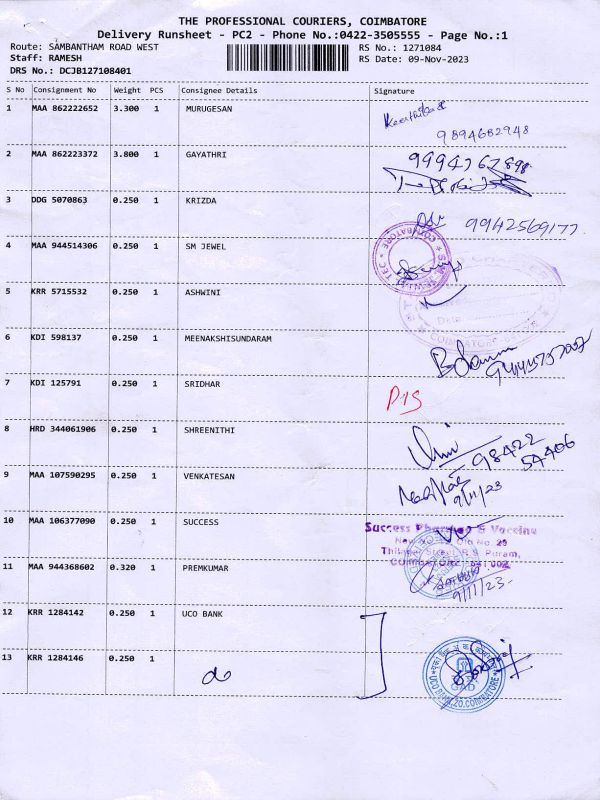 THE PROFESSIONAL COURIERS, COIMBATORE
Delivery Runsheet - PC2 - Phone No.:0422-3505555 - Page No.:1
Route: SAMBANTHAM ROAD WEST RS No.: 1271084
Staff: RAMESH RS Date: 09-Nov-2023
DRS No.: DCJB127108401
S No Consignment No Weight PCS Consignee Details Signature
1 MAA 862222652 3.300 1 MURUGESAN
9894682948
2 MAA 862223372 3.800 1 GAYATHRI 9994762898
3 DDG 5070863 0.250 1 KRIZDA
9942569177
4 MAA 944514306 0.250 1 SM JEWEL
COIMBATORE
5 KRR 5715532 0.250 1 ASHWINI
6 KDI 598137 0.250 1 MEENAKSHISUNDARAM
7 KDI 125791 0.250 1 SRIDHAR
8 HRD 344061906 0.250 1 SHREENITHI
98422
54406
9 MAA 107590295 0.250 1 VENKATESAN
9/11/23
10 MAA 106377090 0.250 1 SUCCESS
Success & Vaccine
Street, R.S. Puram,
11 MAA 944368602 0.320 1 PREMKUMAR
9/11/23
12 KRR 1284142 0.250 1 UCO BANK
13 KRR 1284146 0.250 1
do
GAD
UCO BANK, ZO, COIMBATORE